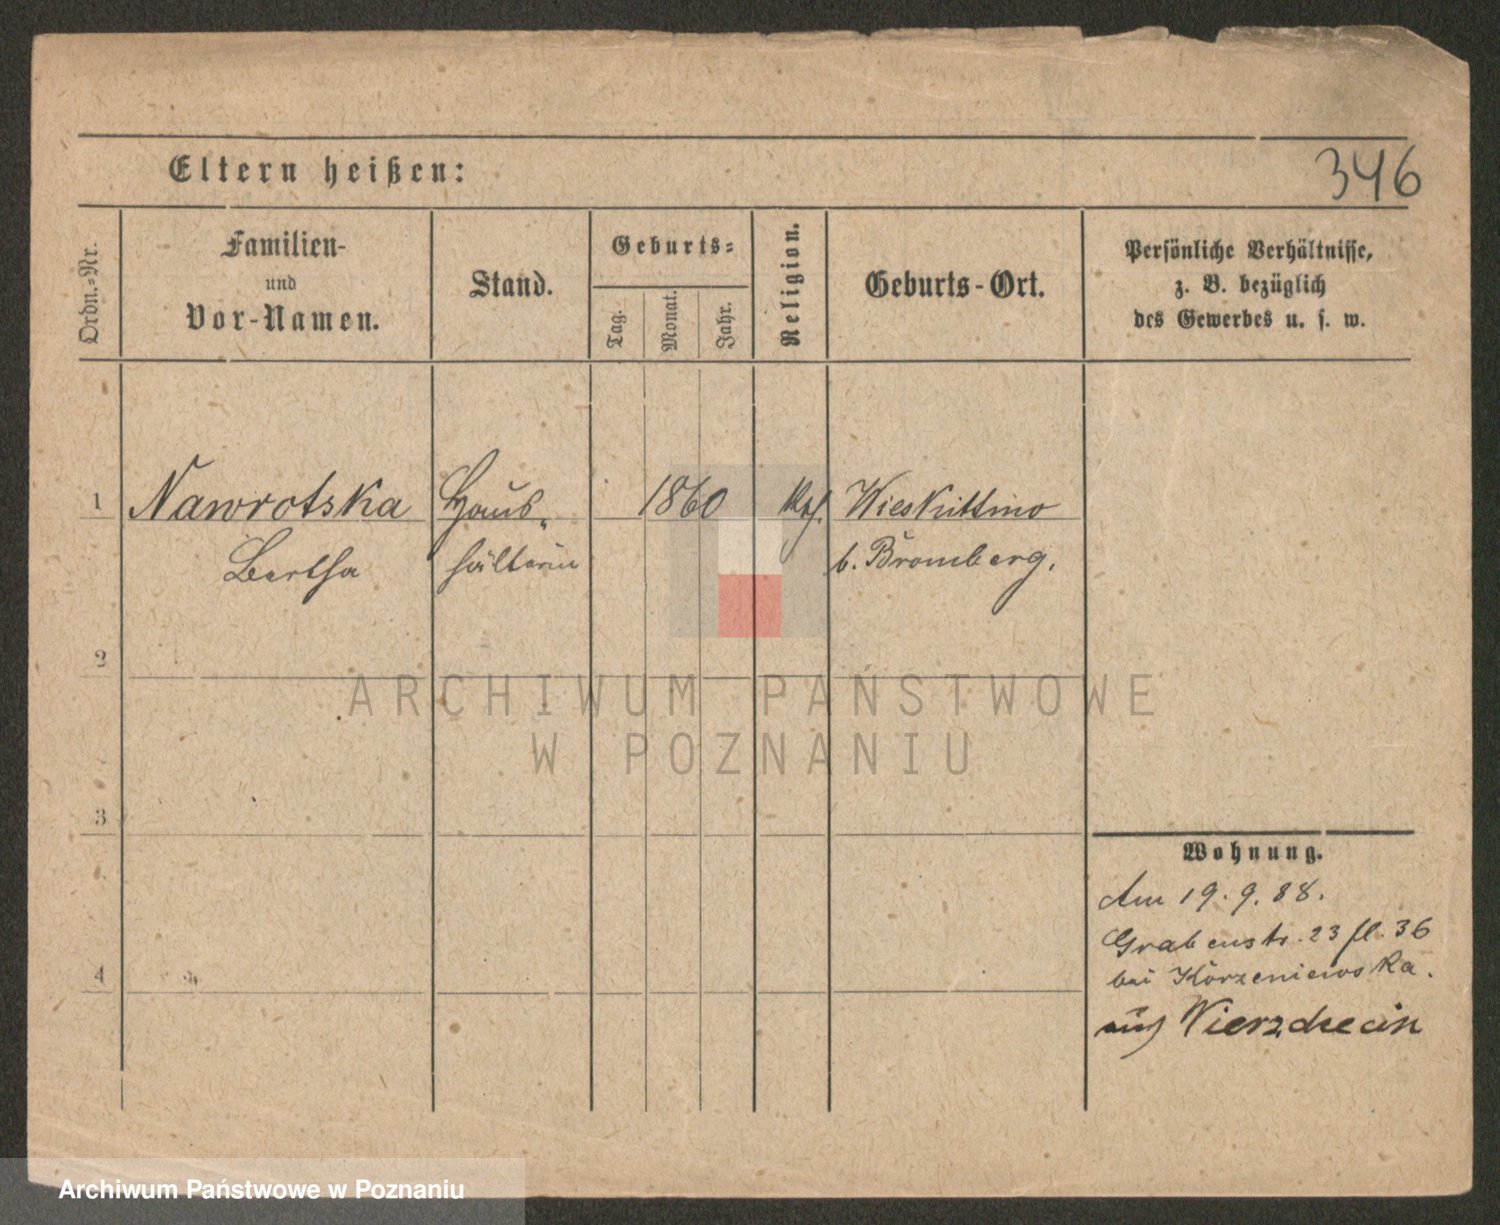 346
Eltern heißen:
Ordn.-Nr.
Familien-
und
Vor-Namen.
Stand.
Geburts-
Tag.
Monat.
Jahr.
Religion.
Geburts-Ort.
Persönliche Verhältnisse,
z. B. bezüglich
des Gewerbes u. s. w.
1 Nawrotska Haus- 1860 Kth. Wieskittno
Bertha hälterin b. Bromberg.
2
3
4
Wohnung.
Am 19. 9. 88.
Grabenstr. 23 fl. 36
bei Korzeniewska.
aus Wierzchecin
ARCHIWUM PAŃSTWOWE
W POZNANIU
Archiwum Państwowe w Poznaniu